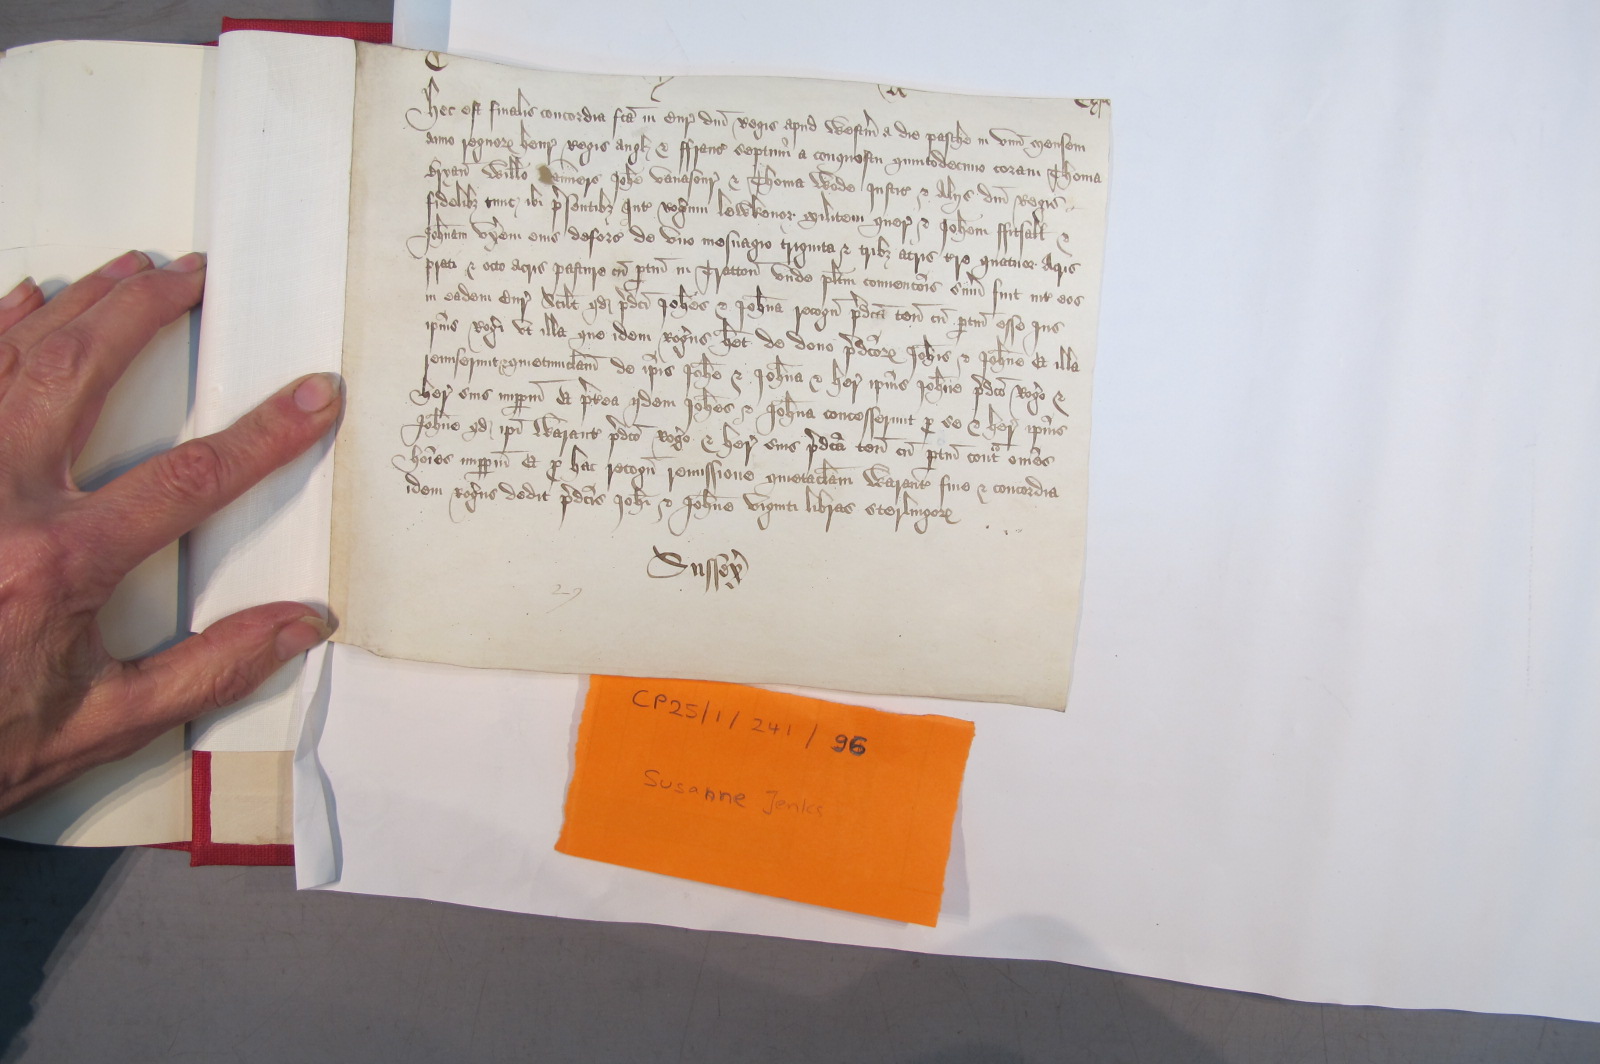 Hec est finalis concordia fca in Cur dni Regis apud Westm a die pasche in unu mensem
anno regnor Henr Regis Angl & ffranc septimi a conquestu quintodecimo coram Thoma
Bryan Willo Johe Vavasour & Thoma Wode Justic & Alijs dni Regis
fidelibz tunc ibi psentibz Int Rogum lewkenor militem quer & Johem ffitzall &
Johnam uxem eius deforc de uno mesuagio triginta & tribz acris tre quatuor acris
prati & octo acris pasture cu ptin in Tratton unde plitm convencois sum fuit int eos
in eadem Cur Scilt qd pdci Johes & Johna recogn pdca ten cu ptin esse ius
ipius Rogi ut illa que idem Rogus het de dono pdcor Johis & Johne Et illa
remiserunt & quietumclam de ipis Johe & Johna & her ipius Johne pdco Rogo &
her suis imppm Et pterea ijdem Johes & Johna concesserunt p se & her ipius
Johne qd ipi Warant pdco Rogo & her suis pdca ten cu ptin cont omes
hoies imppm Et p hac recogn remissione quietaclam Warant fine & concordia
idem Rogus dedit pdcis Johi & Johne viginti libras sterlingor
Sussex
29
CP25/1/241/96
Susanne Jenks